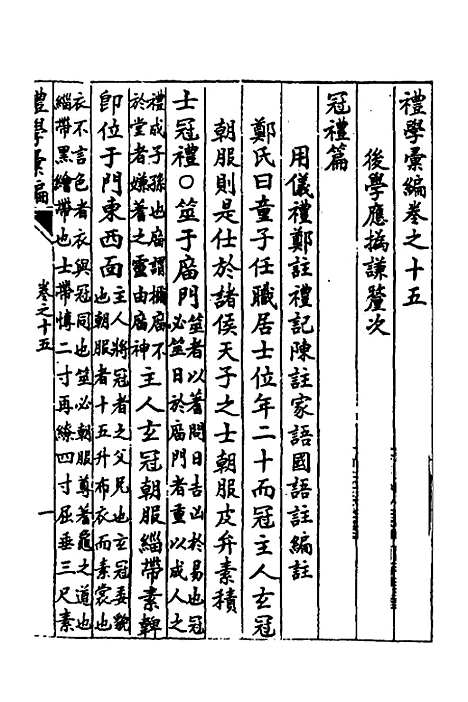 禮學彙編卷之十五
後學應撝謙釐次
冠禮篇
用儀禮鄭註禮記陳註家語國語註編註
鄭氏曰童子任職居士位年二十而冠主人玄冠
朝服則是仕於諸侯天子之士朝服皮弁素積
士冠禮○筮于庿門筮者以蓍問日吉凶於易也冠
必筮日於庿門者重以成人之
禮成子孫也庿謂禰庿不
於堂者嫌蓍之靈由庿神主人玄冠朝服緇帶素韠
卽位于門東西面主人將冠者之父兄也玄冠委貌
也朝服者十五升布衣而素裳也
衣不言色者衣與冠同也筮必朝服尊蓍龜之道也
緇帶黑繒帶也士帶博二寸再繚四寸屈垂三尺素
禮學彙編
卷之十五
一